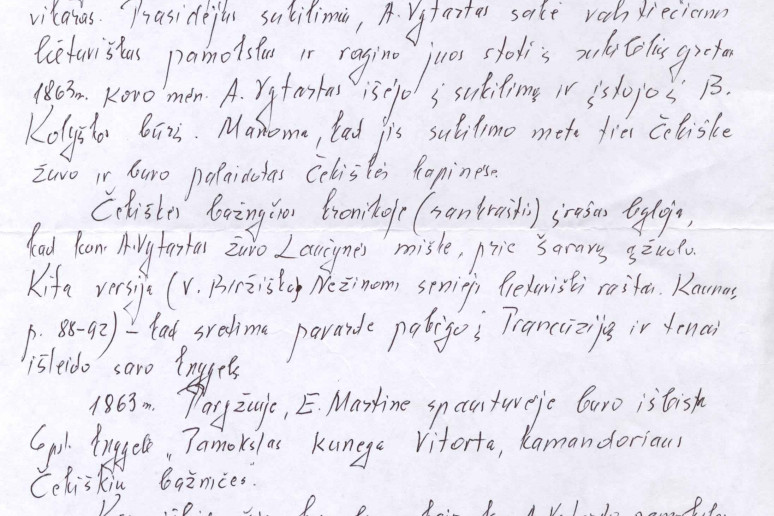 vikaras. Prasidėjus sukilimui, A. Vytartas sakė valstiečiams
lietuviškus pamokslus ir ragino juos stoti į sukilėlių gretas
1863 m. kovo mėn. A. Vytartas išėjo į sukilimą ir įstojo į B.
Kolyškos būrį. Manoma, kad jis sukilimo metu ties Čekiške
žuvo ir buvo palaidotas Čekiškės kapinėse.
Čekiškės bažnyčios kronikoje (rankraštis) įrašas byloja,
kad kun. A. Vytartas žuvo Laučynės miške, prie Šaravų ąžuolo.
Kita versija (V. Biržiška, Nežinomi senieji lietuviški raštai. Kaunas,
p. 88-92) – kad svetima pavarde pabėgo į Prancūziją ir tenai
išleido savo knygelę
1863 m. Paryžiuje, E. Martine spaustuvėje buvo išleista
6 psl. knygelė „Pamokslas kunega Vitorta, kamandoriaus
Čekiškiu bažničes".
A. Vytarto